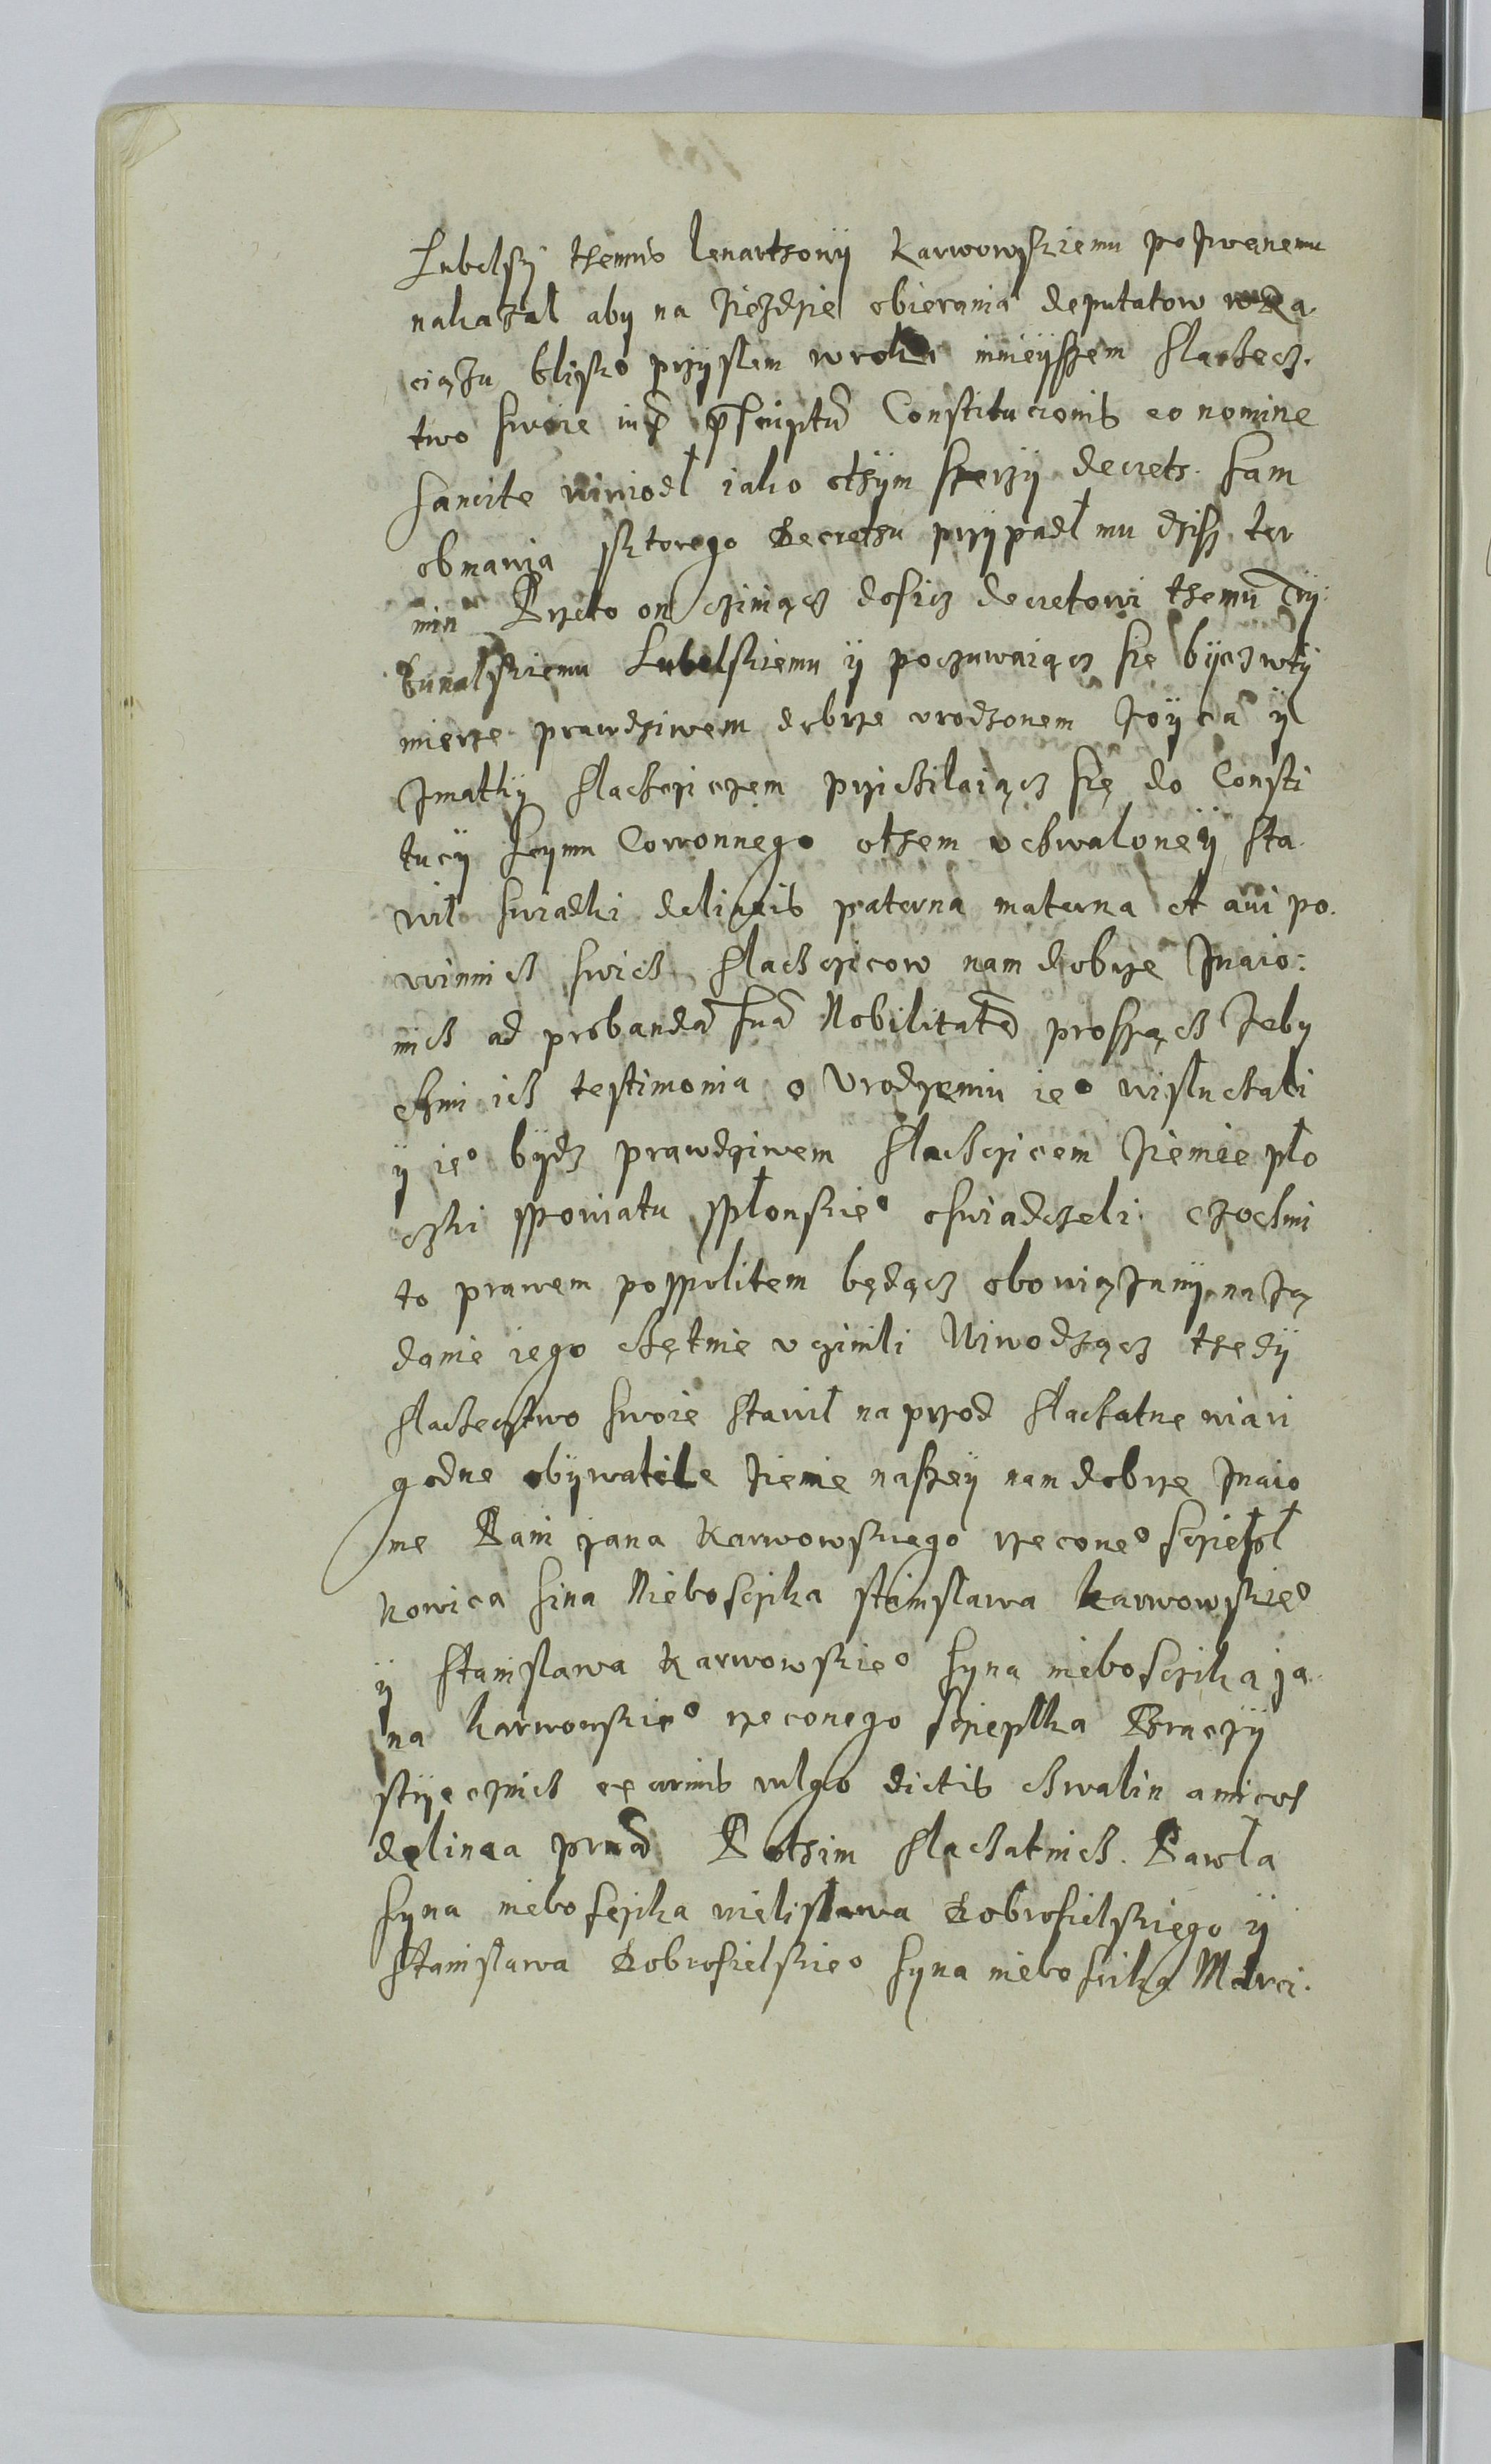 Lubelsky themuś lenarthowÿ Karwowskiemu pozwanemu
nakazał aby na ziezdzie obierania deputatow w Ra
ciązu blisko przyszłem wroku inieÿszem slachecz.
two swoie iux pscriptu Constitucionis eo nomine
sancite wiwiodł iako othym szerzy decreth sam
obmawia sktorego Decrethu przypadł mu dziss ter
min Przeto on czyniącz dosicz decretowi themu Try
bunalskiemu Lubelskiemu ÿ poczuwaiącz sie byczwtÿ
mierze prawdziwem dobrze vrodzonem zoÿca ÿ
zmatky slachcziczem przichilaiącz się do Consti
tucÿ Seymu Coronnego othem vchwaloneÿ sta
wil swiadki delineis paterna materna et aui po
winnich swich slachcziców nam dobrze znaio:
mich ad probandā suā Nobilitatē proszącz zeby
chmi ich testimonia o Vrodzeniu ieo wisłuchali
ÿ ieo bydz prawdziwem slachcicem ziemie pło
czki powiatu płonskieo oswiadczeli czochmi
to prawem pospolitem będącz obowiązany na zą
danie iego chętnie vczinili Wiwodzącz thedÿ
slachecztwo swoie stawił naprzod slachatne wiari
godne obÿwatele ziemie naszeÿ nam dobrze znaio
me Pani jana Karwowskiego rzeconeo
kowica sina Nieboscika stanisława karwowskieo
ÿ Stanisława Karwowskieo syna nieboscika ja
na karwowskieo rzeconego Bracÿ
strÿecznich ex armis vulgo dictis chwalin amicos
delinea Pothim slachatnich Pawła
syna nieboscika mielisława Dobrosielskiego ÿ
Stanisława Dobrosielskieo syna nieboscika Marci